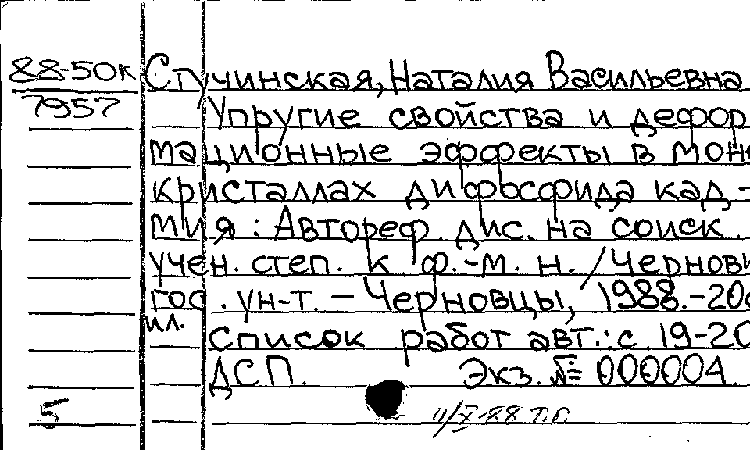 88-50к Стучинская, Наталия Васильевна
7957 Упругие свойства и дефор
мационные эффекты в мон
кристаллах дифосфида кад-
мия : Автореф. дис. на соиск.
учен. степ. к ф.-м. н. / Чернови
гос. ун-т. - Черновцы, 1988. - 20с
ил.
Список работ авт.: с 19-20
ДСП. Экз. № 000004
5